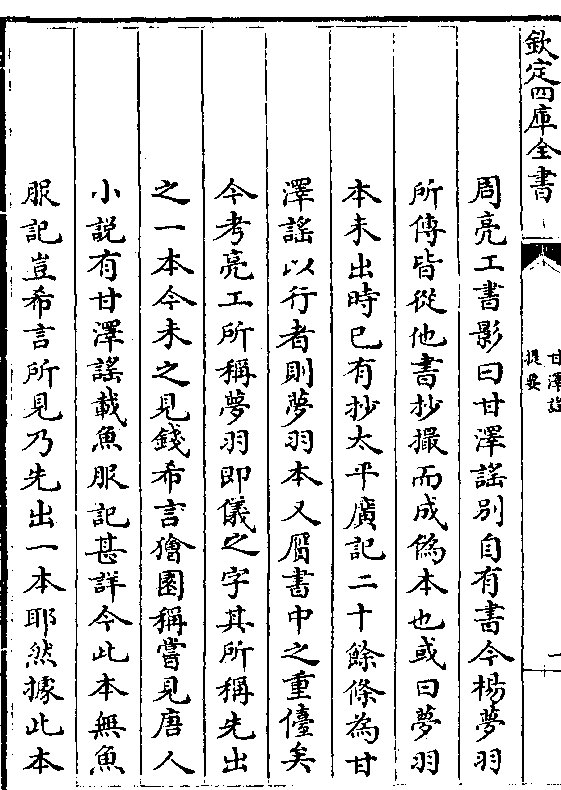 欽定四庫全書
甘澤謠
提要
一
周亮工書影曰甘澤謠别自有書今楊夢羽
所傳皆從他書抄撮而成偽本也或曰夢羽
本未出時已有抄太平廣記二十餘條為甘
澤謠以行者則夢羽本又贋書中之重儓矣
今考亮工所稱夢羽即儀之字其所稱先出
之一本今未之見錢希言獪園稱嘗見唐人
小説有甘澤謠載魚服記甚詳今此本無魚
服記豈希言所見乃先出一本耶然據此本